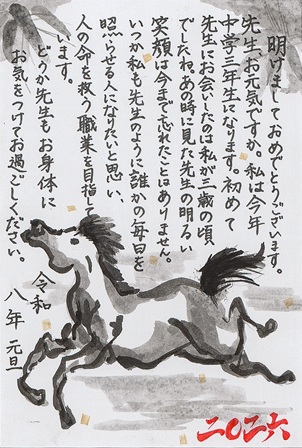 明けましておめでとうございます。
先生、お元気ですか。私は今年
中学三年生になります。初めて
先生にお会いしたのは私が三歳の頃
でしたね。あの時に見た先生の明るい
笑顔は今まで忘れたことはありません。
いつか私も先生のように誰かの毎日を
照らせる人になりたいと思い、
人の命を救う職業を目指して
います。
どうか先生もお身体に
お気をつけてお過ごしください。
令和
八年 元旦
二〇二六